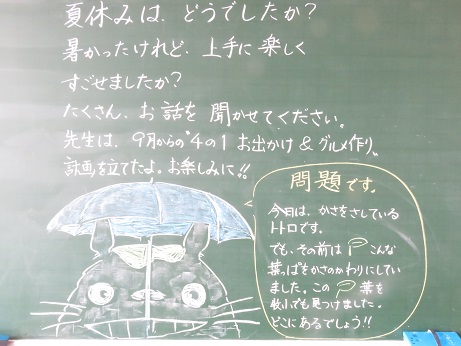 夏休みは、どうでしたか？
暑かったけれど、上手に楽しく
すごせましたか？
たくさん、お話を聞かせてください。
先生は、9月からの"4の1 お出かけ & グルメ作り"
計画を立てたよ。お楽しみに!!
問題です。
今日は、かさをさしている
トトロです。
でも、その前は こんな
葉っぱをかさのかわりにしてい
ました。この 葉を
でも見つけました。
どこにあるでしょう!!